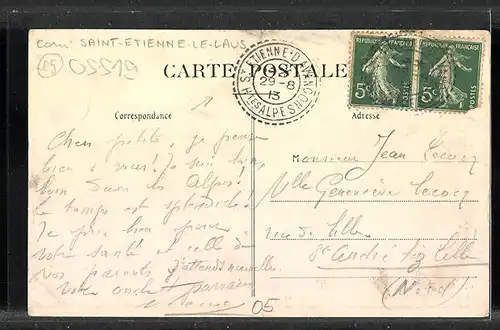 Com: SAINT-ETIENNE-LE-LAUS
05519
CARTE POSTALE
ST ETIENNE-D'AVANÇON
29-8
13
HTES ALPES
RÉPUBLIQUE FRANÇAISE
5c POSTES
RÉPUBLIQUE FRANÇAISE
5c POSTES
Correspondance
Adresse
Chers petits, je pense
bien à vous! Je suis bien,
bien dans les Alpes!
Le temps est splendide.
Je prie bien pour
votre santé et celle de
vos parents. J'attends nouvelles
votre oncle parrain
Monsieur Jean Lecocq
Mlle Geneviève Lecocq
rue de Lille
St André lez Lille
(Nord)
05